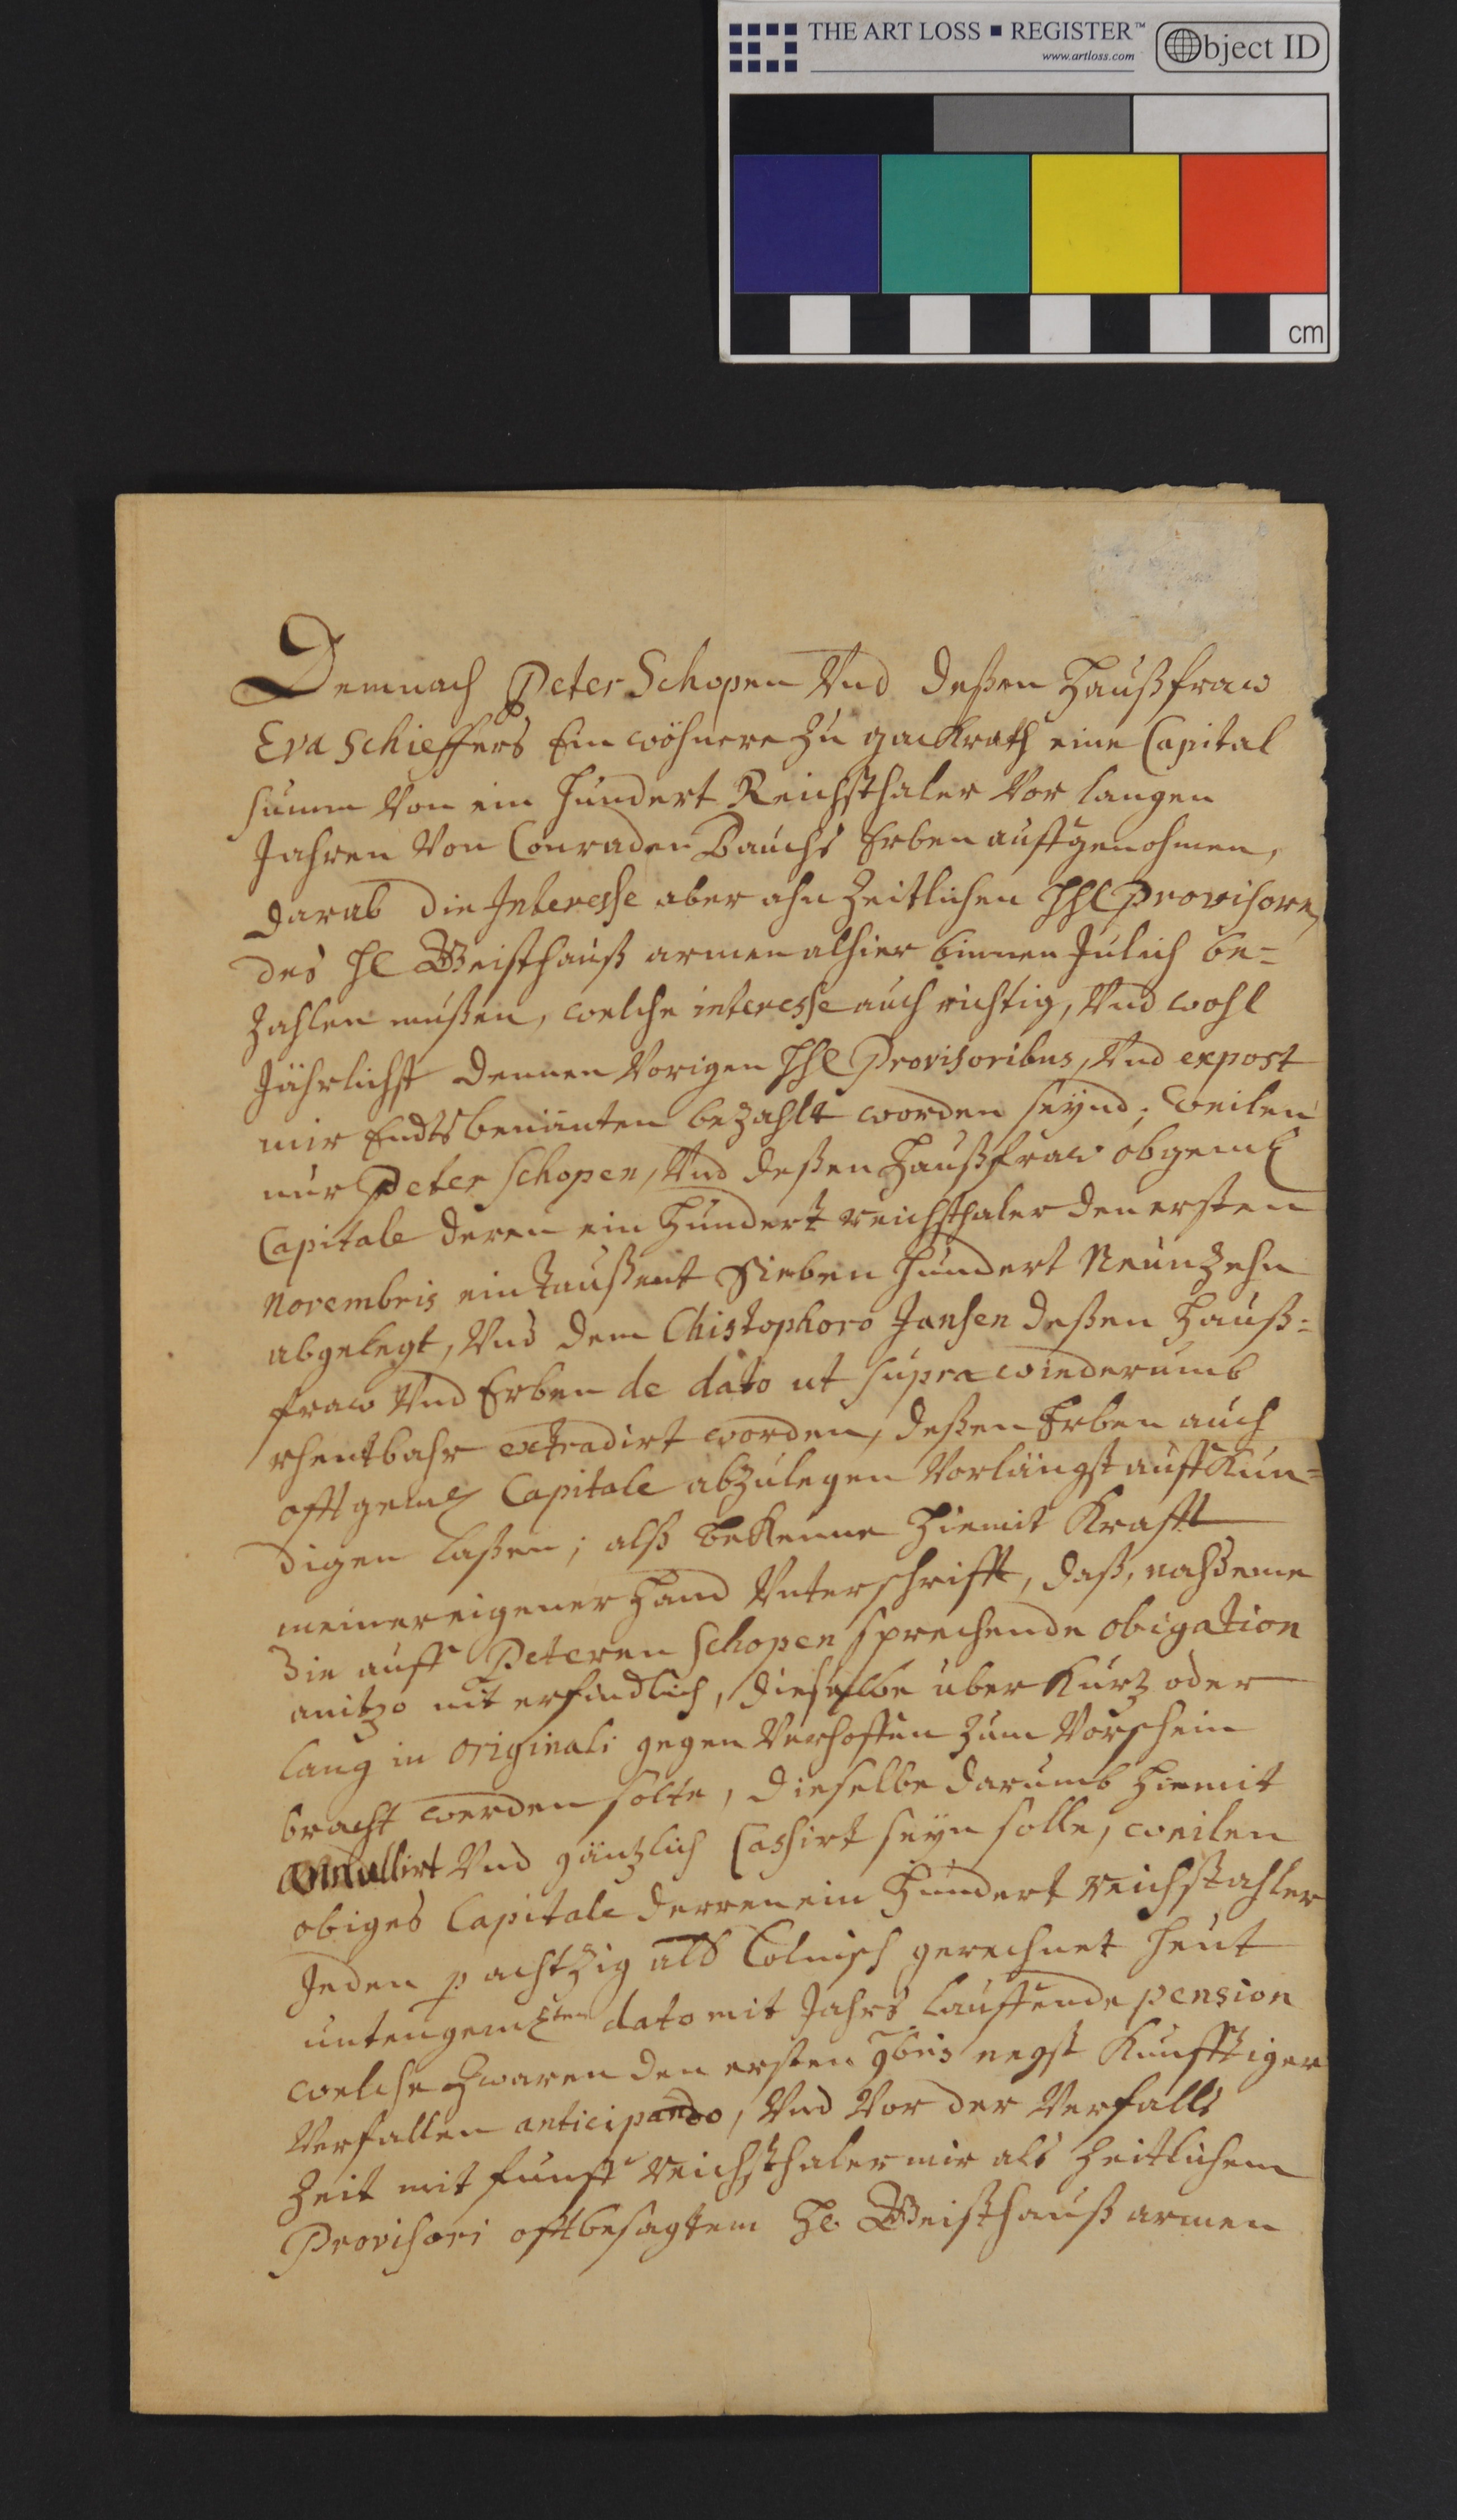 THE ART LOSS ▪ REGISTER™
www.artloss.com
Object ID
cm
Demnach Peter Schopen Vnd deßen Haußfraw
Eva Schieffers Einwöhnere zu gackrath eine Capital
summ Von ein hundert Reichsthaler Vor langen
Jahren Von Conraden Bauchs Erben auffgenohmen,
darab die Interesse aber ahn Zeitlichen HHl Provisoren
des Hl Geisthauß armen alhier binnen Julich be=
zahlen mußen, welche interesse auch richtig, Vnd wohl
Jährlichst dennen Vorigen HHl Provisoribus, Vnd expost
mir Endtsbenänten bezahlt worden seynd; weilen
nur Peter Schopen, Vnd deßen Haußfraw obgeml
Capitale deren ein Hundert reichsthaler den ersten
Novembris ein taußent Sieben hundert Neunzehn
abgelegt, Vnd dem Chistophoro Jansen deßen Hauß=
fraw Vnd Erben de dato ut supra wiederumb
rhentbahr extradirt worden, deßen Erben auch
offtgeml Capitale abzulegen Vorlängst auffkün=
digen laßen; alß bekenne hiemit Krafft
meiner eigener Hand Vnterschrifft, daß, nahdeme
die auff Peteren Schopen sprechende obigation
anitzo nit erfindlich, dieselbe uber Kurz oder
lang in originali gegen Verhoffen zum Vorschein
bracht werden solte, dieselbe darumb hiemit
annullirt Vnd gäntzlich Cassirt seyn solle, weilen
obiges Capitale derren ein Hundert reichstahler
Jeden p achtzig alb Colnisch gerechnet heut
untengemlten dato mit Jahrs lauffende pension
welche zwaren den ersten 9bris negst Kunfftiger
Verfallen anticipando, Vnd Vor der Verfalls
Zeit mit funff reichsthaler mir als Zeitlichem
Provisori offtbesagtem Hl. Geisthauß armen